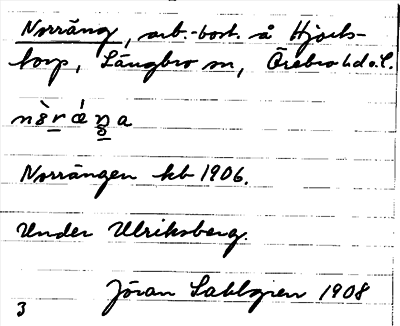 Norräng, arb.-bost. å Hjorts-
torp, Längbro sn, Örebro hd o. l.
nòrä́ŋa
Norrängen kb 1906.
Under Ulriksberg.
Jöran Sahlgren 1908
3